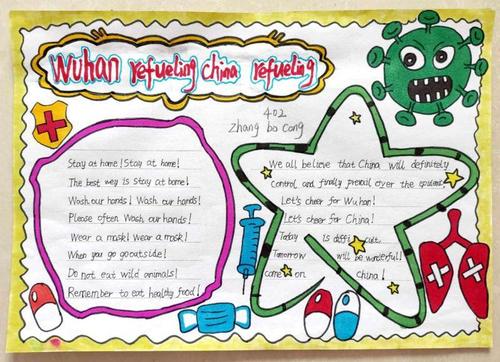 Wuhan refueling china refueling
402
Zhang bo cong
Stay at home! Stay at home!
The best way is stay at home!
Wash our hands! Wash our hands!
Please often wash our hands!
Wear a mask! Wear a mask!
When you go gooutside!
Do not eat wild animals!
Remember to eat healthy food!
We all believe that China will definitely
control and finally prevail over the epidemic
Let's cheer for Wuhan!
Let's cheer for China!
Today is difficult.
Tomorrow will be wonderful!
come on China!